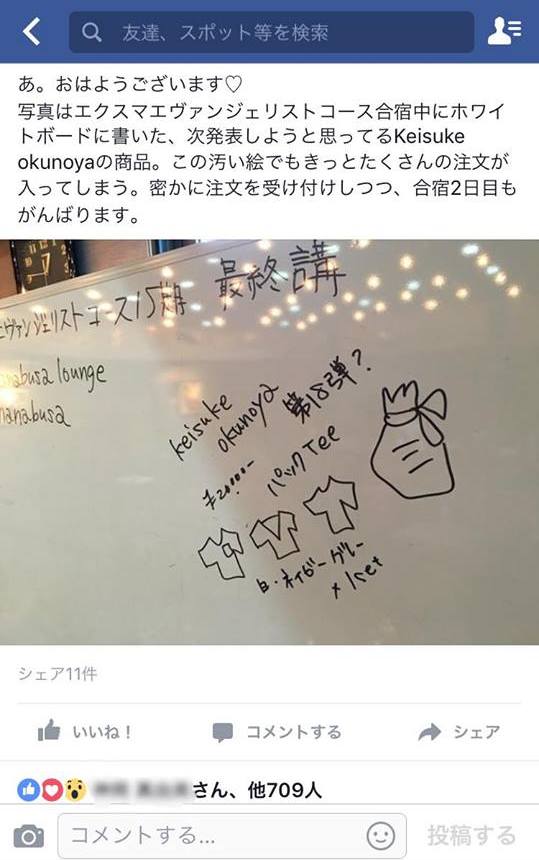 友達、スポット等を検索
あ。おはようございます♡
写真はエクスマエヴァンジェリストコース合宿中にホワイ
トボードに書いた、次発表しようと思ってるKeisuke
okunoyaの商品。この汚い絵でもきっとたくさんの注文が
入ってしまう。密かに注文を受け付けしつつ、合宿2日目も
がんばります。
エヴァンジェリストコース15期 最終講
anabusa lounge
hanabusa
keisuke
okunoya 第18弾?
¥20000-
パックTee
白・ネイビー グレー
× 1set
シェア11件
いいね!
コメントする
シェア
さん、他709人
コメントする...
投稿する